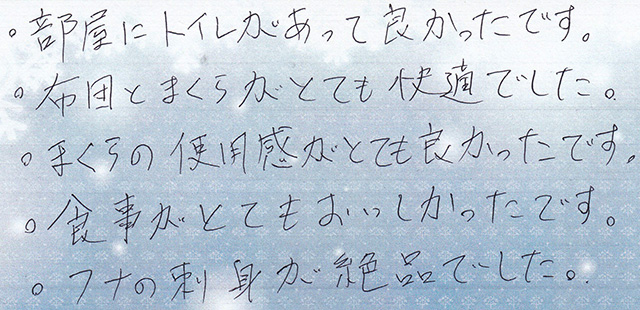 。部屋にトイレがあって良かったです。
。布団とまくらがとても快適でした。
。まくらの使用感がとても良かったです。
。食事がとてもおいしかったです。
。フナの刺身が絶品でした。